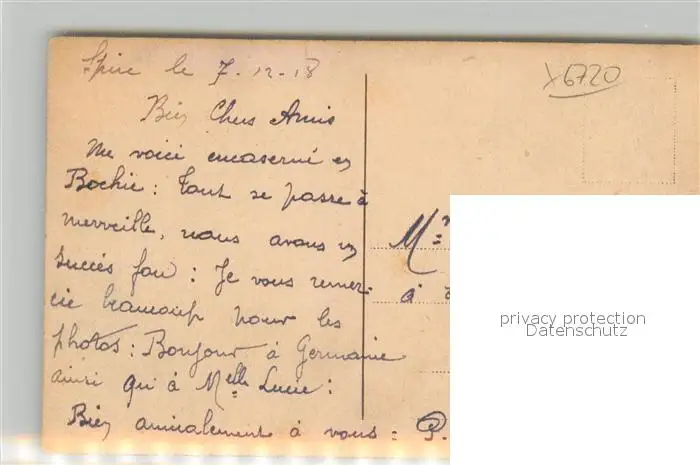 Spire le 7-12-18
X6720
Bien Chers Amis
Me voici encaserné en
Bochie : Tout se passe à
merveille, nous avons un
succès fou : Je vous remer-
cie beaucoup pour les
photos : Bonjour à Germaine
ainsi qu'à Melle Lucie :
Bien amicalement à vous : P.
Mr
à
privacy protection
Datenschutz